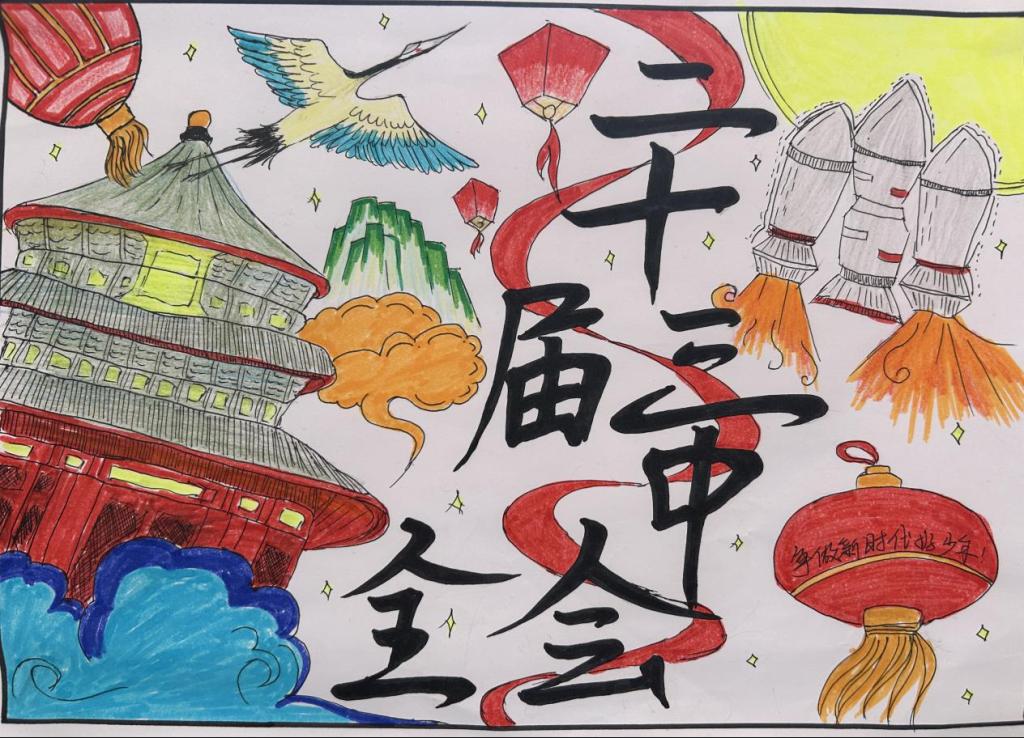 二十
届三中
全会
争做新时代好少年!